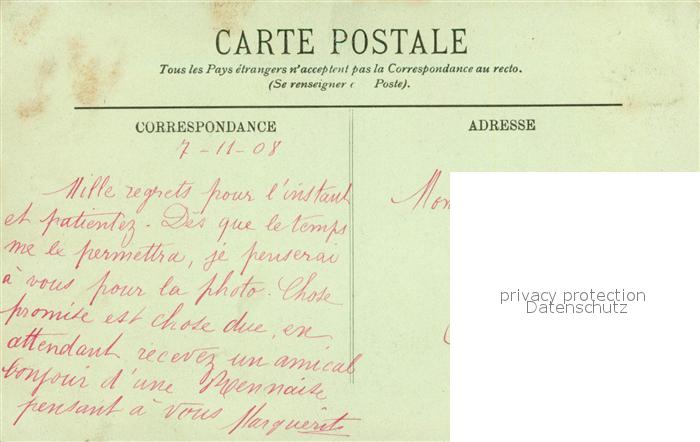 CARTE POSTALE
Tous les Pays étrangers n'acceptent pas la Correspondance au recto.
(Se renseigner Poste).
CORRESPONDANCE
ADRESSE
7-11-08
Mille regrets pour l'instant
et patientez. Dès que le temps
me le permettra, je penserai
à vous pour la photo. Chose
promise est chose due, en
attendant recevez un amical
bonjour d'une Rennaise
pensant à vous Marguerite
Mon
privacy protection
Datenschutz